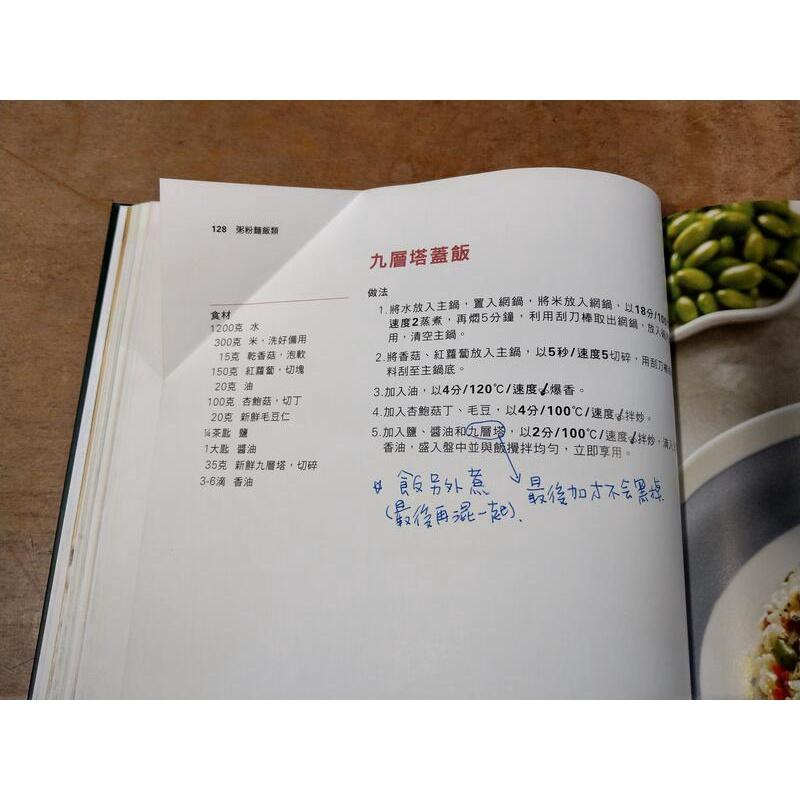 128 粥粉麵飯類
九層塔蓋飯
食材
1200克 水
300克 米，洗好備用
15克 乾香菇，泡軟
150克 紅蘿蔔，切塊
20克 油
100克 杏鮑菇，切丁
20克 新鮮毛豆仁
¼茶匙 鹽
1大匙 醬油
35克 新鮮九層塔，切碎
3-6滴 香油
做法
1.將水放入主鍋，置入網鍋，將米放入網鍋，以18分/100
速度2蒸煮，再燜5分鐘，利用刮刀棒取出網鍋，放入
用，清空主鍋。
2.將香菇、紅蘿蔔放入主鍋，以5秒/速度5切碎，用刮刀
料刮至主鍋底。
3.加入油，以4分/120℃/速度 爆香。
4.加入杏鮑菇丁、毛豆，以4分/100℃/速度 拌炒。
5.加入鹽、醬油和九層塔，以2分/100℃/速度 拌炒，滴入
香油，盛入盤中並與飯攪拌均勻，立即享用。
飯另外煮
(最後再混一起).
最後加才不会黑掉